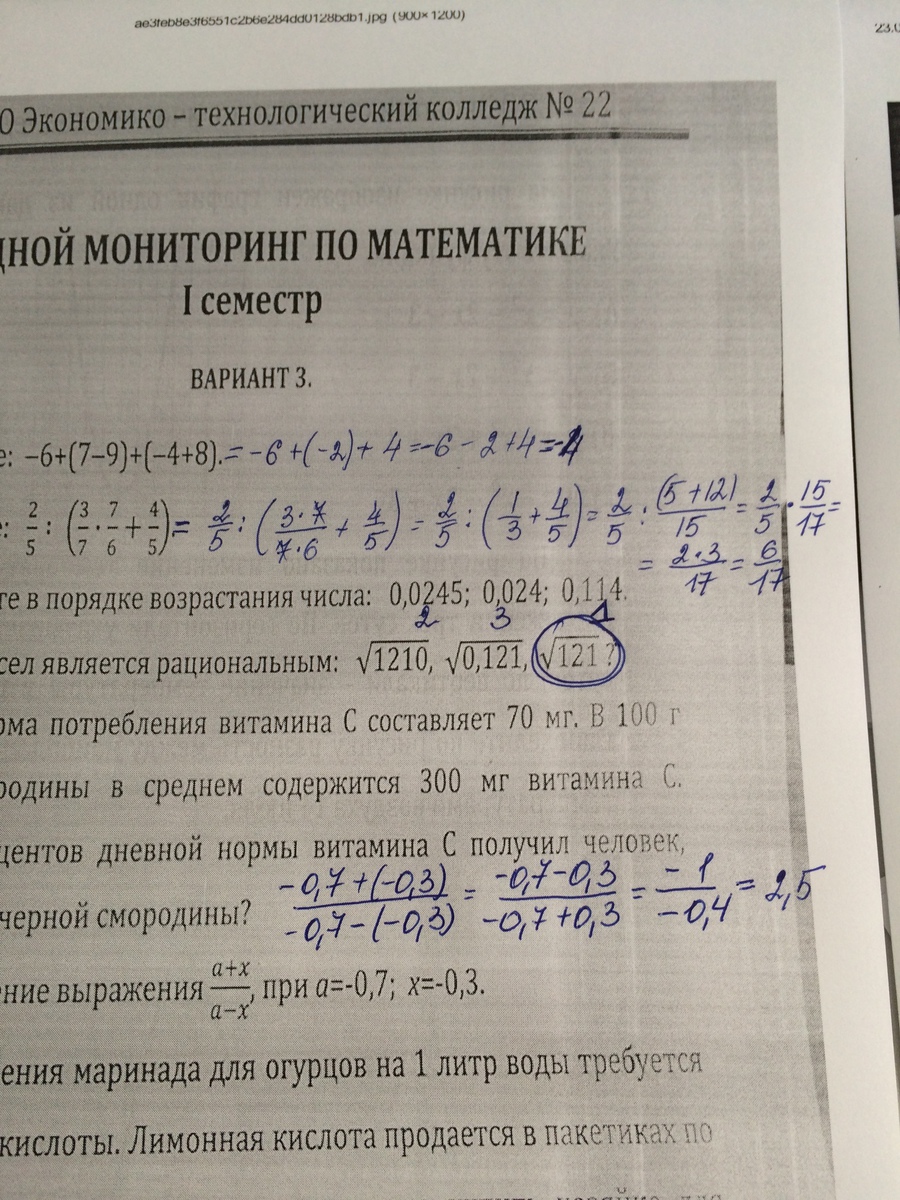 ae3feb8e3f6551c2b6e284dd0128bdb1.jpg (900×1200)
23.0
О Экономико – технологический колледж № 22
ДНОЙ МОНИТОРИНГ ПО МАТЕМАТИКЕ
I семестр
ВАРИАНТ 3.
е: –6+(7–9)+(–4+8). = -6+(-2)+4 = -6-2+4 = -4
е: 2/5 : (3/7 · 7/6 + 4/5) = 2/5 : (3·7/7·6 + 4/5) = 2/5 : (1/3 + 4/5) = 2/5 : (5+12)/15 = 2/5 · 15/17 =
= 2·3/17 = 6/17
те в порядке возрастания числа: 0,0245; 0,024; 0,114.
2 3 1
сел является рациональным: √1210, √0,121, √121 ?
рма потребления витамина С составляет 70 мг. В 100 г
родины в среднем содержится 300 мг витамина С.
центов дневной нормы витамина С получил человек,
черной смородины? -0,7+(-0,3)/-0,7-(-0,3) = -0,7-0,3/-0,7+0,3 = -1/-0,4 = 2,5
ение выражения a+x/a–x, при a=-0,7; x=-0,3.
ения маринада для огурцов на 1 литр воды требуется
кислоты. Лимонная кислота продается в пакетиках по